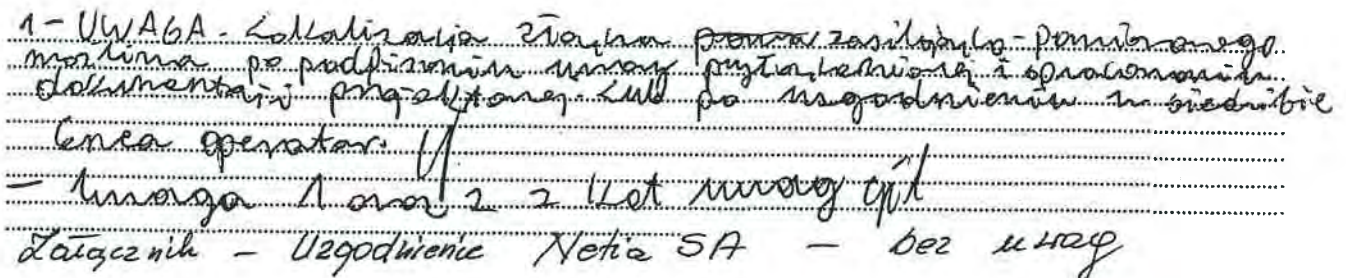 1 - UWAGA. Lokalizacja złącza zasilająco-pomiarowego
możliwa po podpisaniu umowy przyłączeniowej i opracowaniu
dokumentacji projektowej. Lub po uzgodnieniu w siedzibie
Enea operator.
- Uwaga 1 oraz 2 z uwag
Załącznik - Uzgodnienie Netia SA - bez uwag